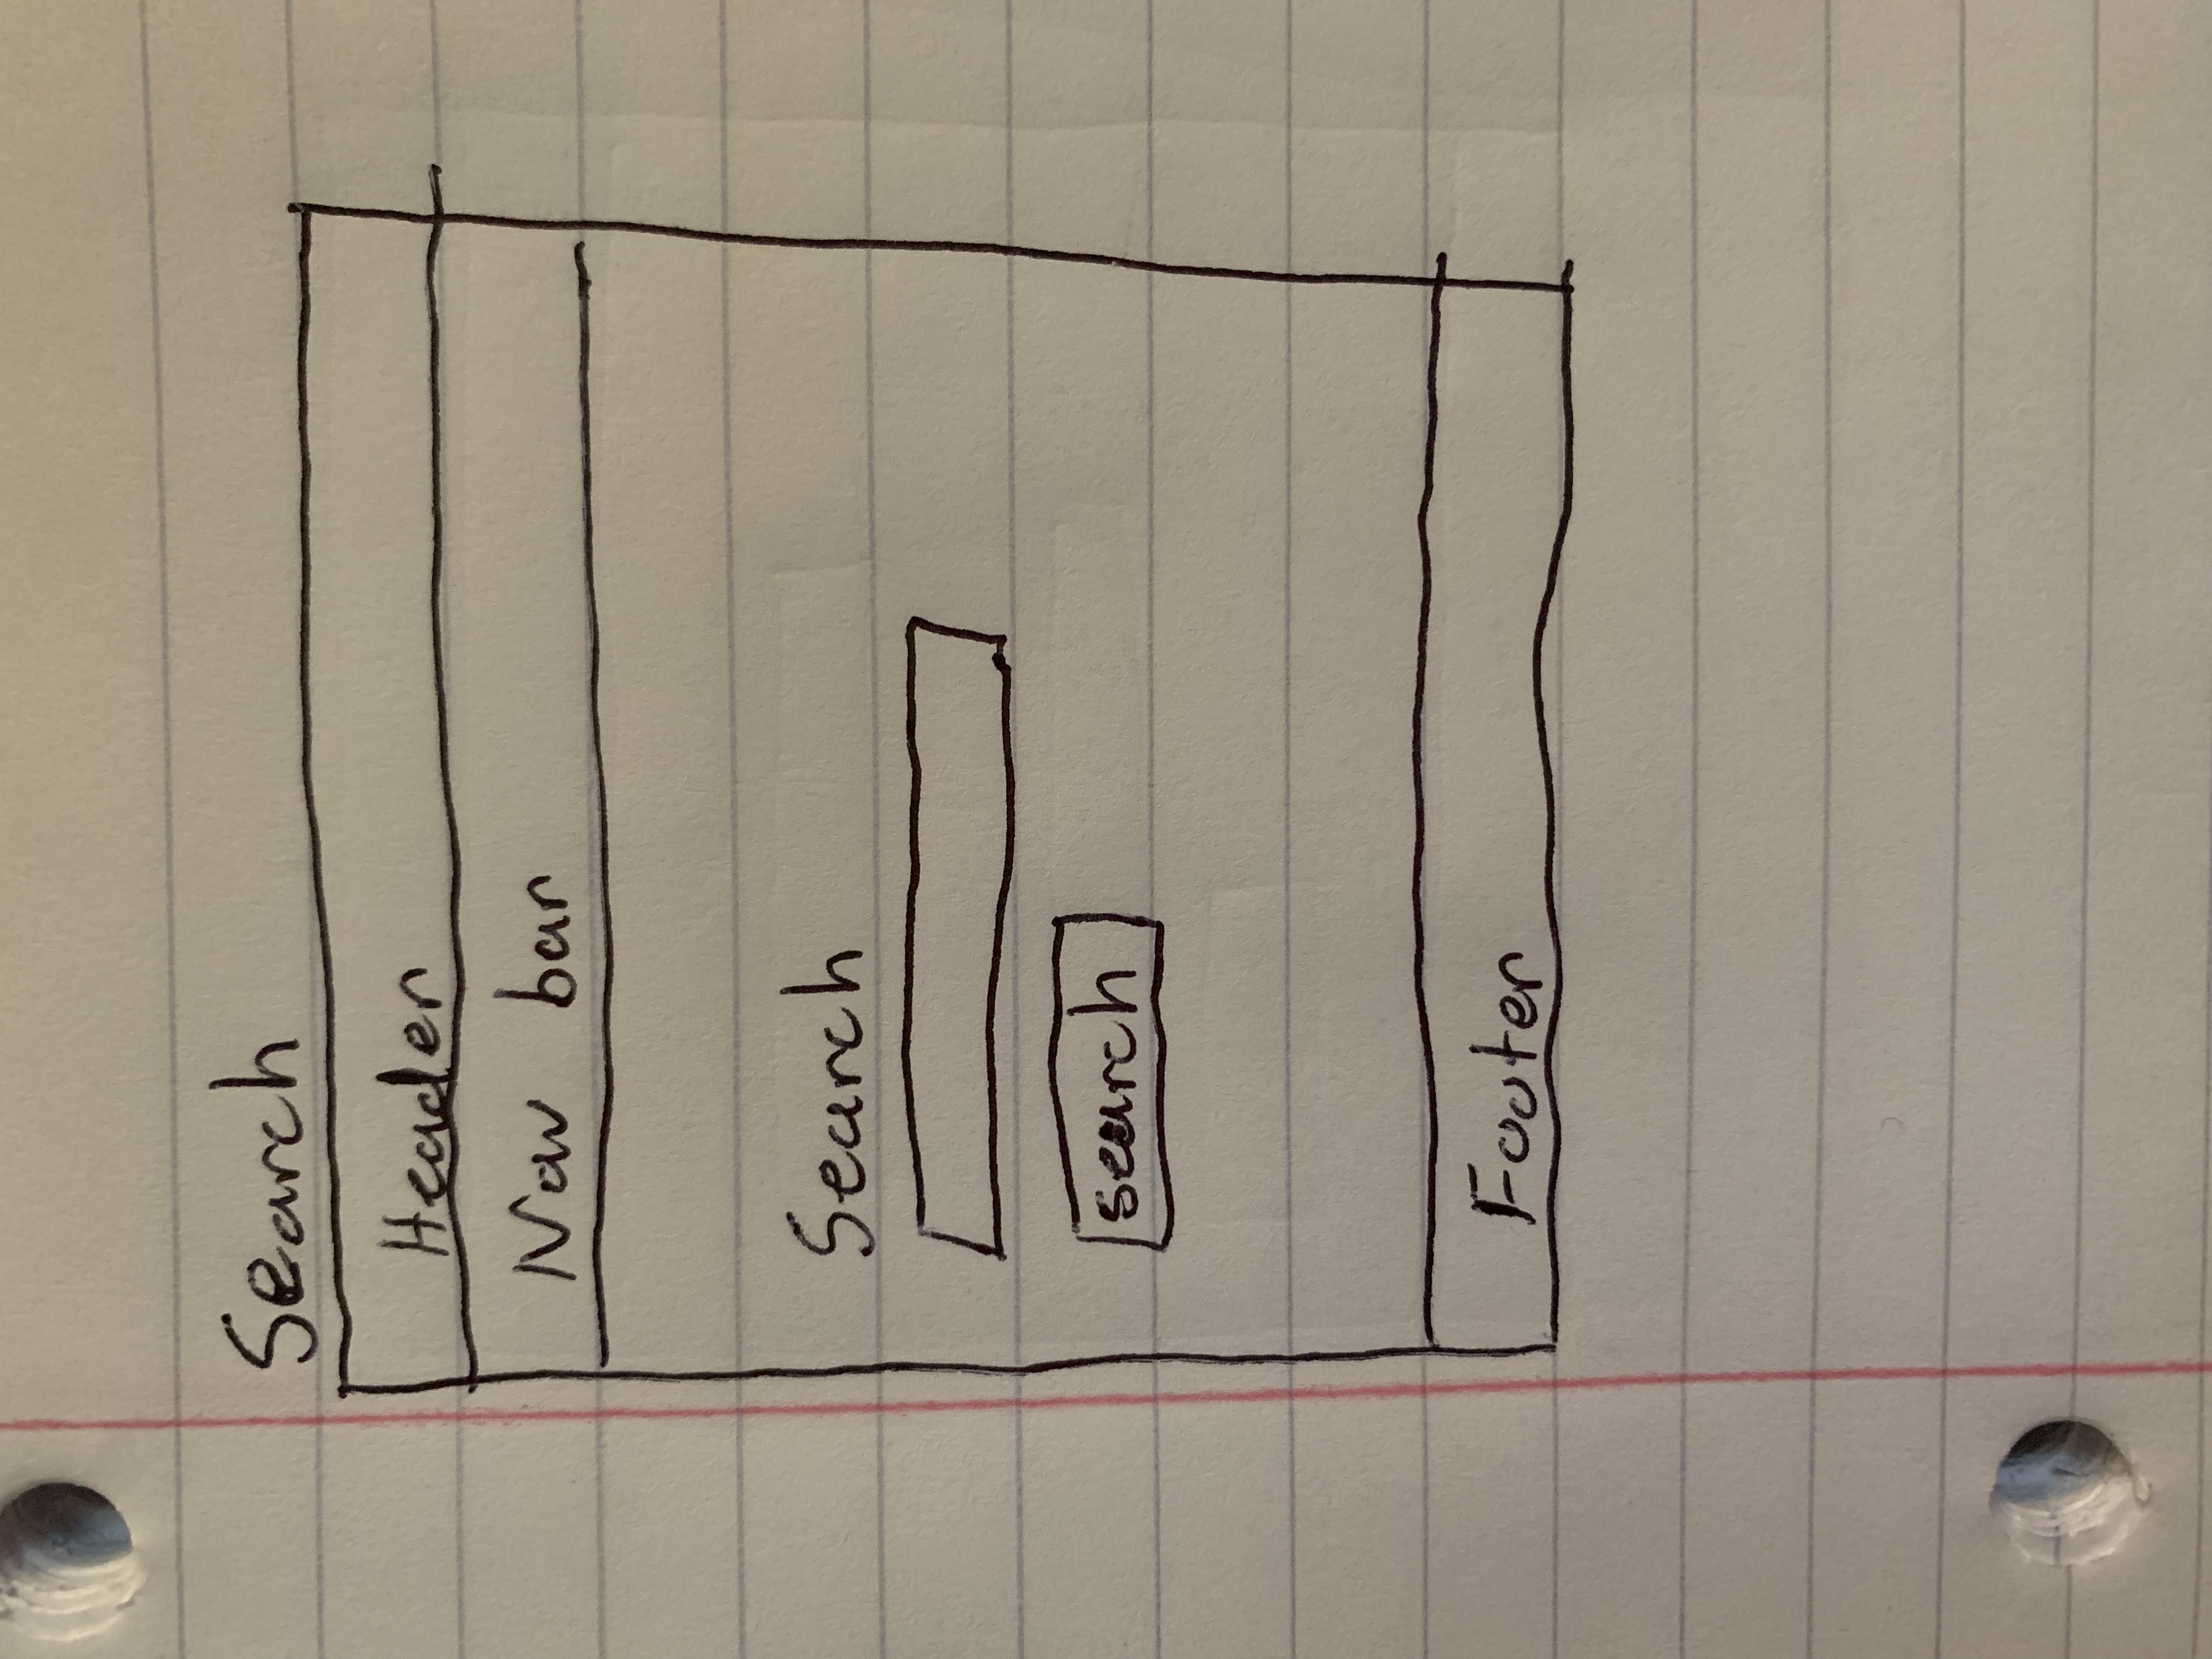 Search
Header
Nav bar
Search
search
Footer